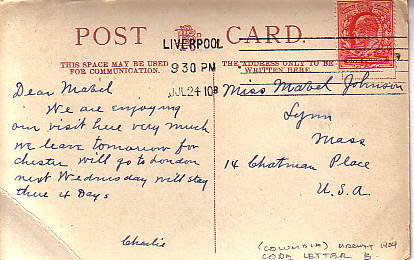 POST CARD.
THIS SPACE MAY BE USED FOR COMMUNICATION.
THE ADDRESS ONLY TO BE WRITTEN HERE.
LIVERPOOL
9 30 PM
JUL 24 10
Dear Mabel
We are enjoying
our visit here very much
we leave tomorrow for
chester will go to London
next Wednesday will stay
there 4 Days
Charlie
Miss Mabel Johnson
Lynn
Mass
14 Chatman Place
U.S.A.
(COLUMBIA)
CODE LETTER B.